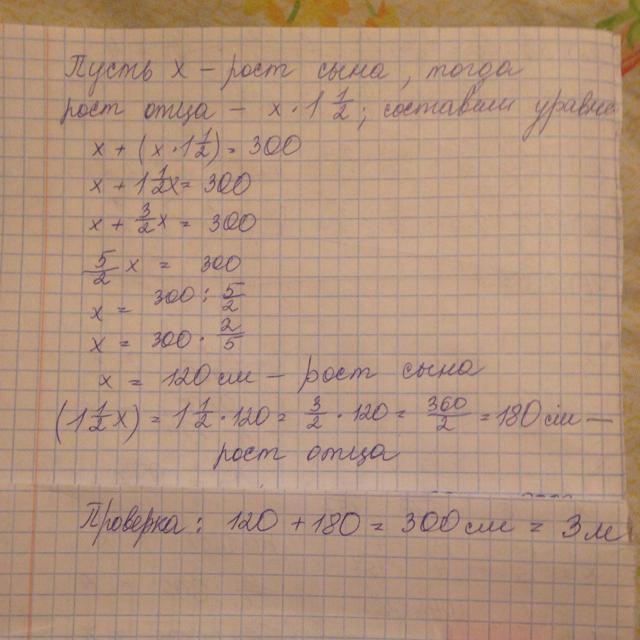 Пусть x – рост сына, тогда
рост отца – x · 1 1/2; составим уравне
x + (x · 1 1/2) = 300
x + 1 1/2x = 300
x + 3/2x = 300
5/2 x = 300
x = 300 : 5/2
x = 300 · 2/5
x = 120 см – рост сына
(1 1/2x) = 1 1/2 · 120 = 3/2 · 120 = 360/2 = 180 см –
рост отца
Проверка: 120 + 180 = 300 см = 3 м